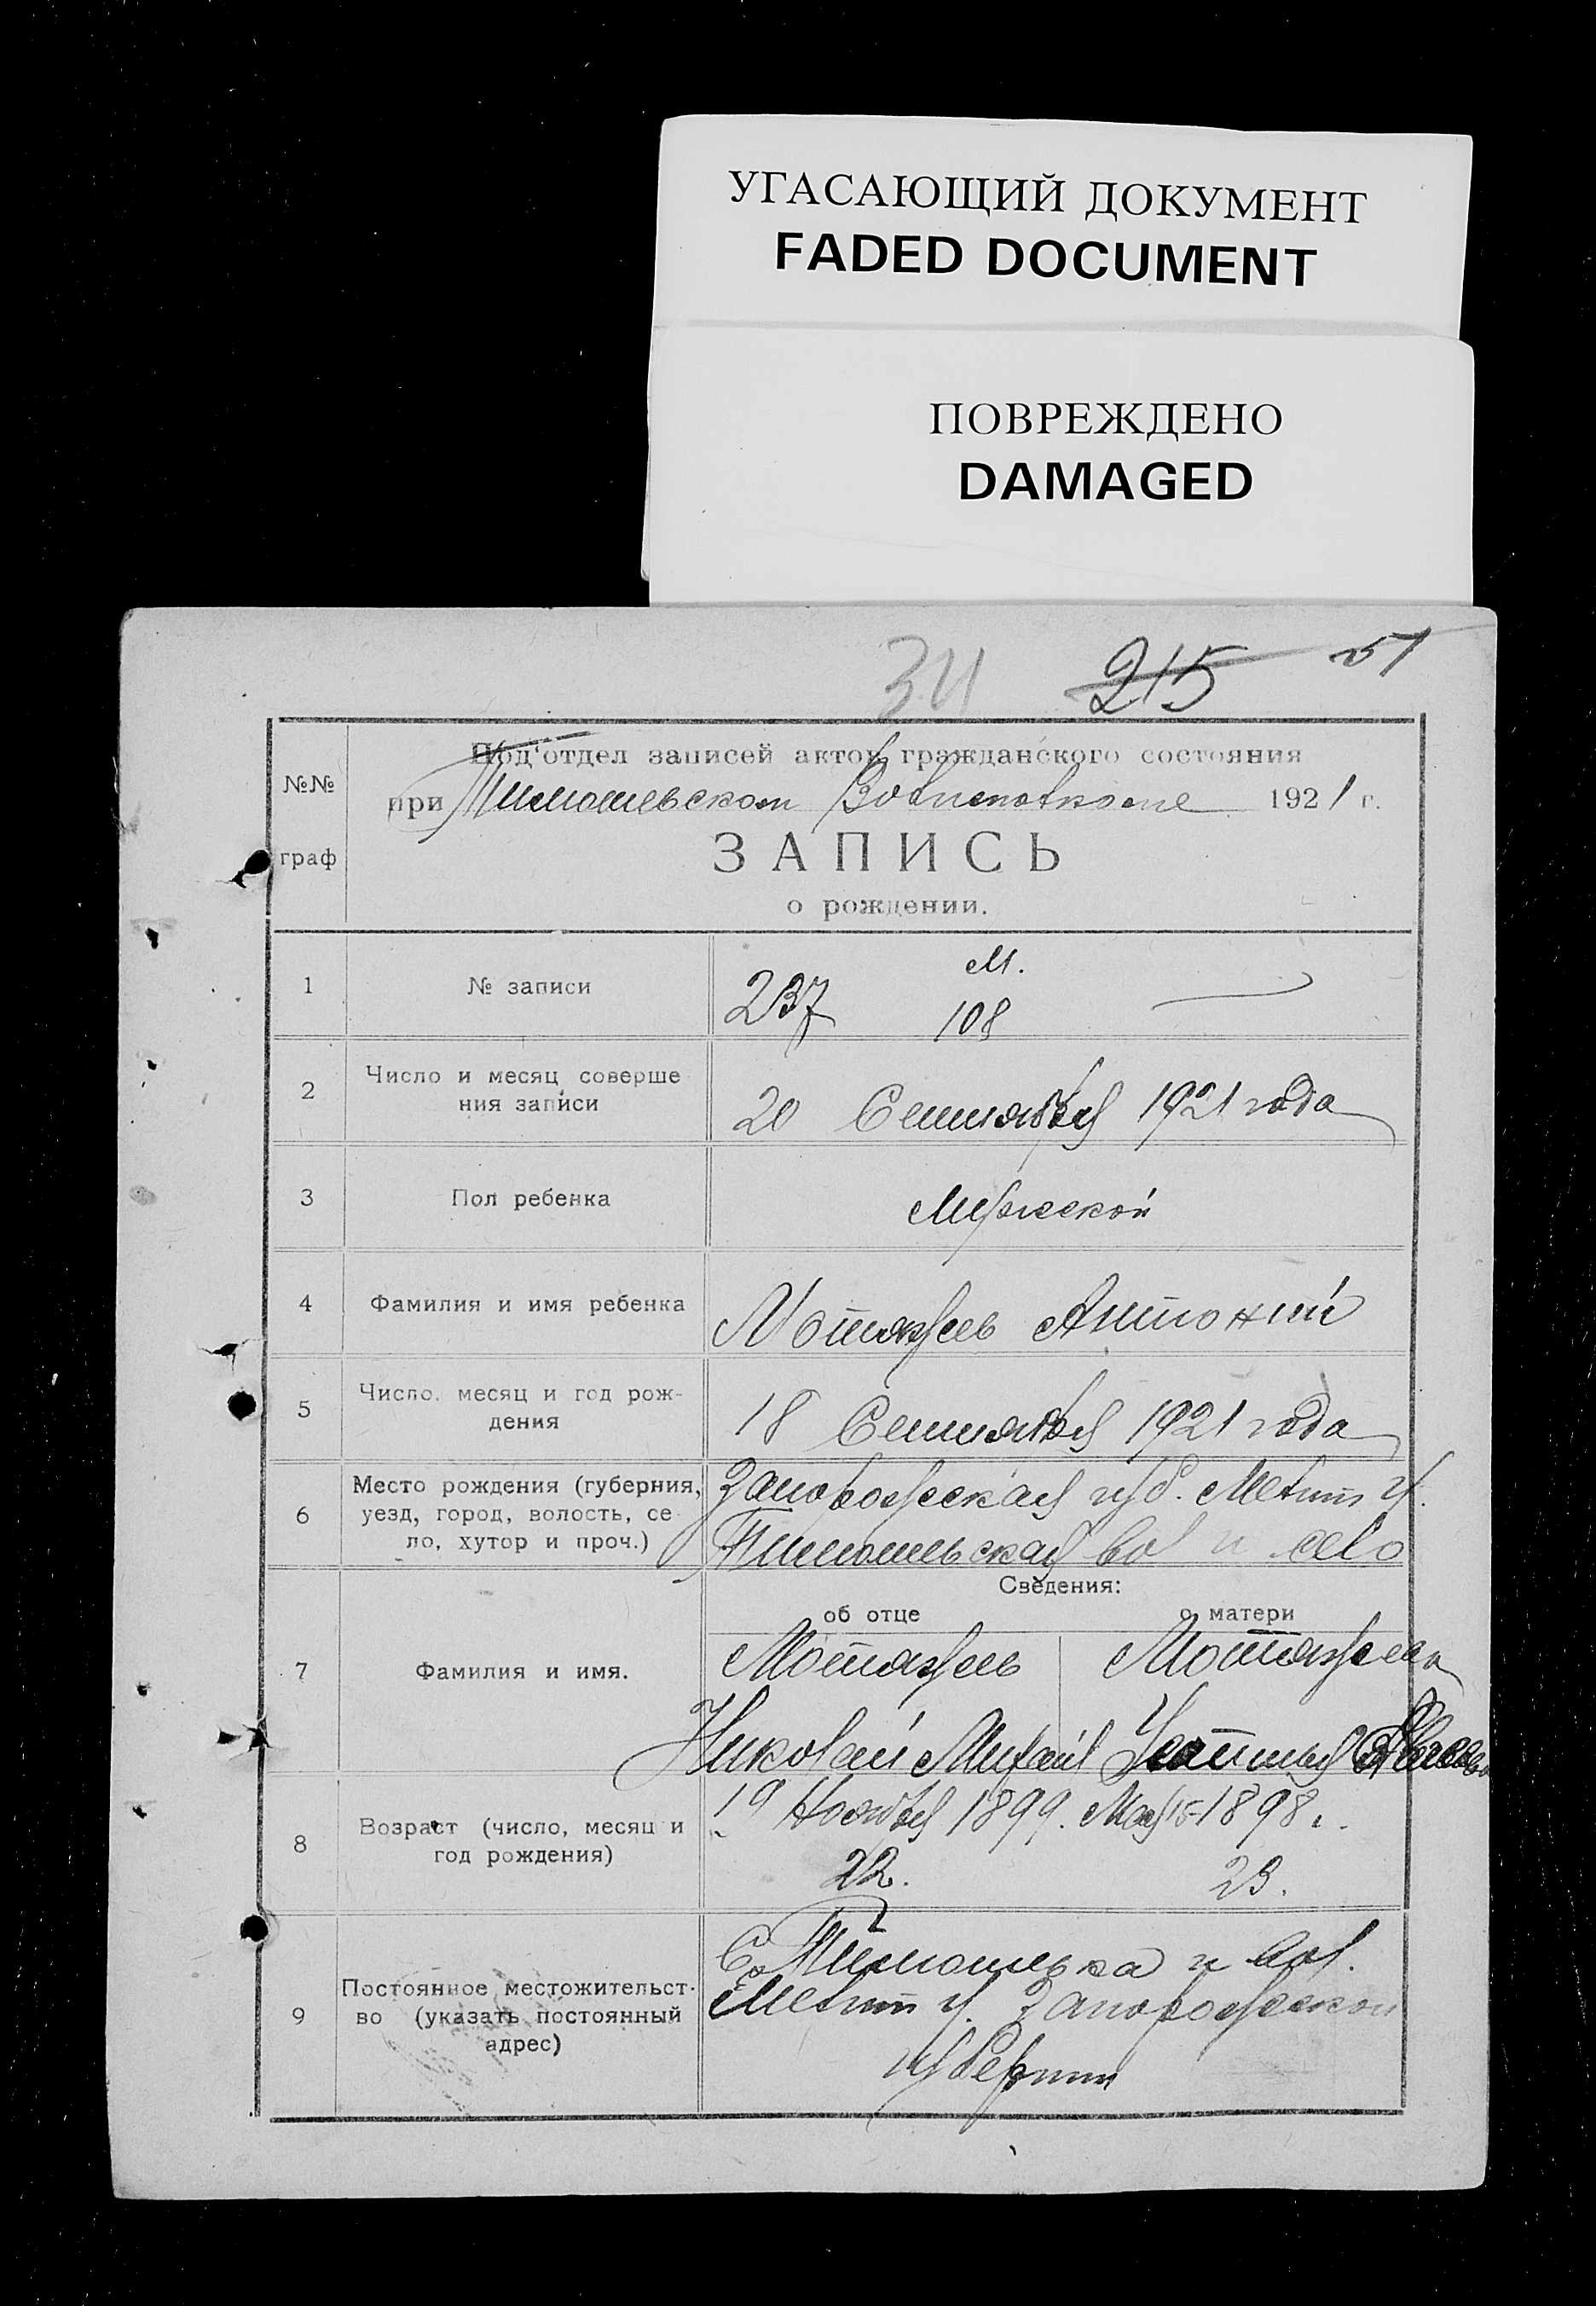 УГАСАЮЩИЙ ДОКУМЕНТ
FADED DOCUMENT
ПОВРЕЖДЕНО
DAMAGED
34 215 51
№№ граф
Под'отдел записей актов гражданского состояния
при Тимошевском Волисполкоме 1921 г.
ЗАПИСЬ
о рождении.
1 № записи 237 М. 108
2 Число и месяц соверше
ния записи 20 Сентября 1921 года
3 Пол ребенка Мужской
4 Фамилия и имя ребенка Мотяжень Антоний
5 Число, месяц и год рож-
дения 18 Сентября 1921 года
6 Место рождения (губерния,
уезд, город, волость, се
ло, хутор и проч.)
Запорожская губ. Мелит у.
Тимошевская вол и село
Сведения:
об отце о матери
7 Фамилия и имя.
Мотяжень Мотяжен
Николай Михаил
8 Возраст (число, месяц и
год рождения)
19 Ноября 1899. Мая 15 1898 г.
22. 23.
9 Постоянное местожительст-
во (указать постоянный
адрес)
С. Тимошевка и вол.
Мелит у. Запорожской
губернии